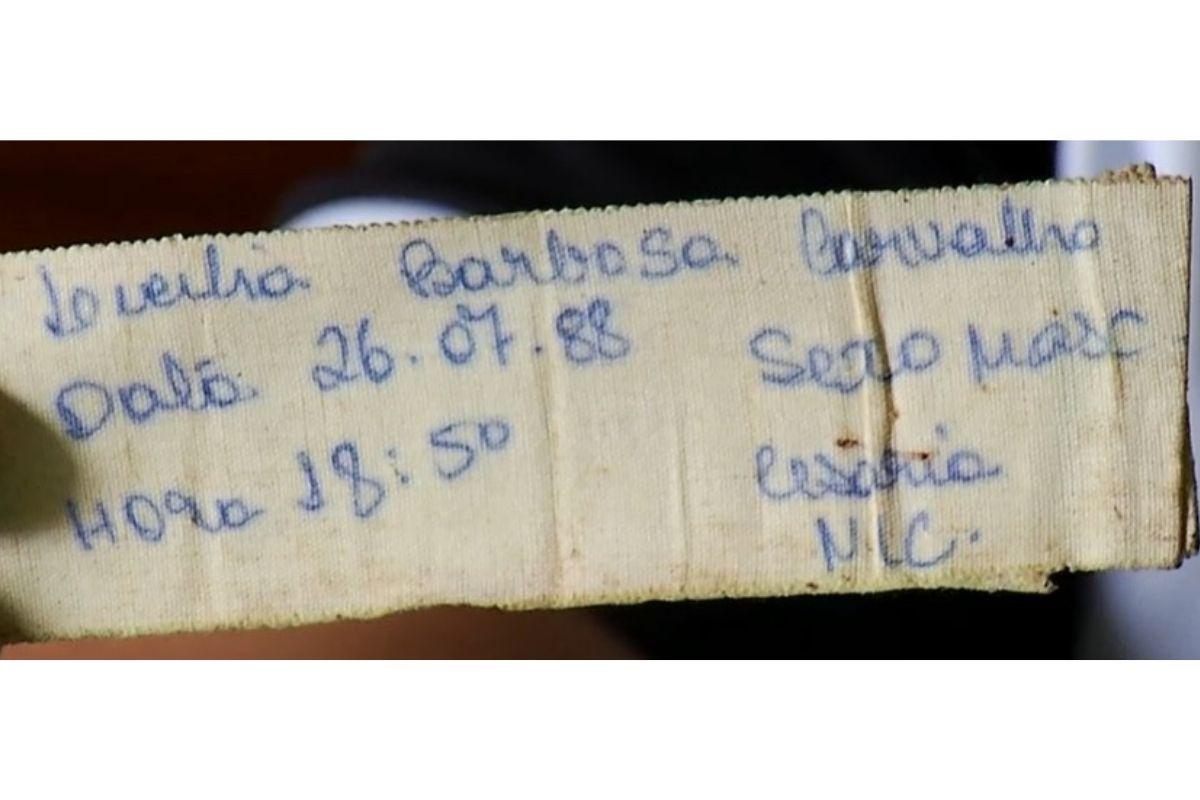 Barbosa Carvalho
Data 26.07.88 Sexo Masc
Hora 18:50 Cesaria
N.C.